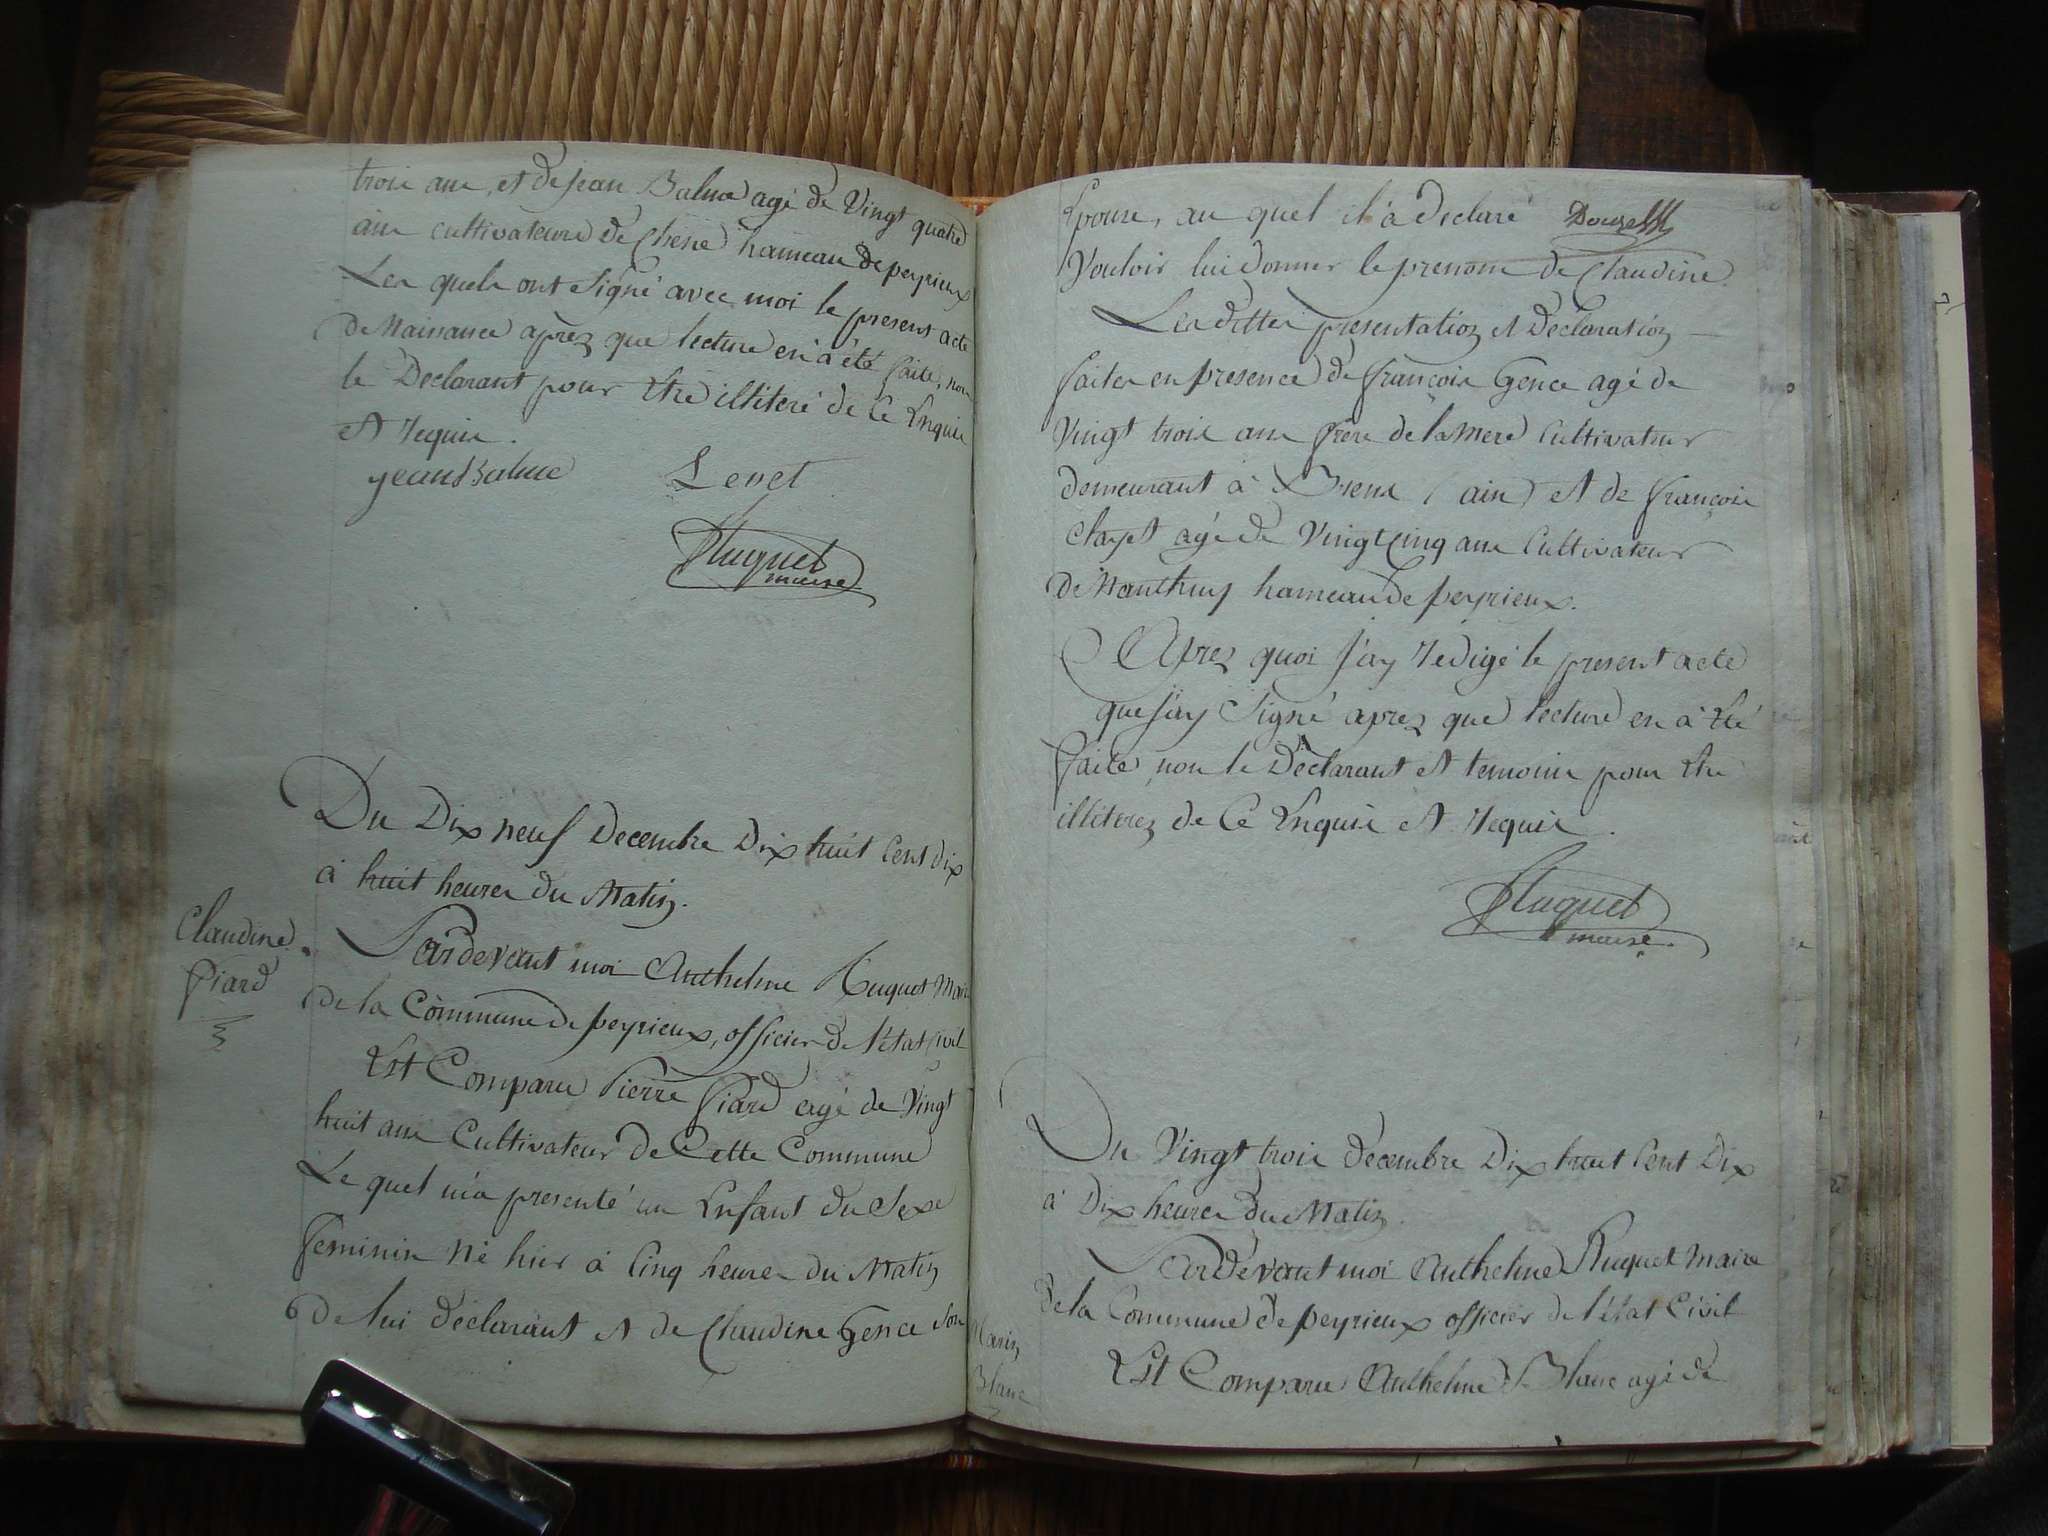 trois ans, et de jean Balme agé de Vingt quatre
ans cultivateurs de Chene hameau de peyrieux
Les quels ont Signé avec moi le present acte
de Naissance aprez que lecture en a été faite, non
le Declarant pour Etre illiteré de ce Enquis
et Requis.
jean Balme Levet
Huguet
maire
Du Dix neuf Decembre Dix huit Cent dix
à huit heures du Matin.
Claudine
Piard
Pardevant moi Anthelme Huguet Maire
de la Commune de peyrieux, officier de l'état Civil
Est Comparu Pierre Piard agé de Vingt
huit ans Cultivateur de Cette Commune
Le quel m'a presenté un Enfant du Sexe
feminin né hier à Cinq heures du Matin
de lui declarant et de Claudine Gence son
Epouse, au quel il à declaré
Vouloir lui donner le prenom de Claudine.
Les dittes presentation et Declaration
faites en presence de françois Gence agé de
Vingt trois ans frere de la Mere Cultivateur
demeurant à Brens (ain) et de françois
Clayet agé de Vingt Cinq ans Cultivateur
de Nanthuy hameau de peyrieux.
Aprez quoi j'ay Redigé le present acte
que j'ay Signé aprez que lecture en à Eté
faite, non le Déclarant et temoins pour Etre
illiterez de Ce Enquis et Requis.
Huguet
maire.
Du Vingt trois décembre Dix huit Cent Dix
à Dix heures du Matin.
Marin
Blanc
Pardevant moi Anthelme Huguet Maire
de la Commune de peyrieux officier de l'état Civil
Est Comparu Anthelme Blanc agé de